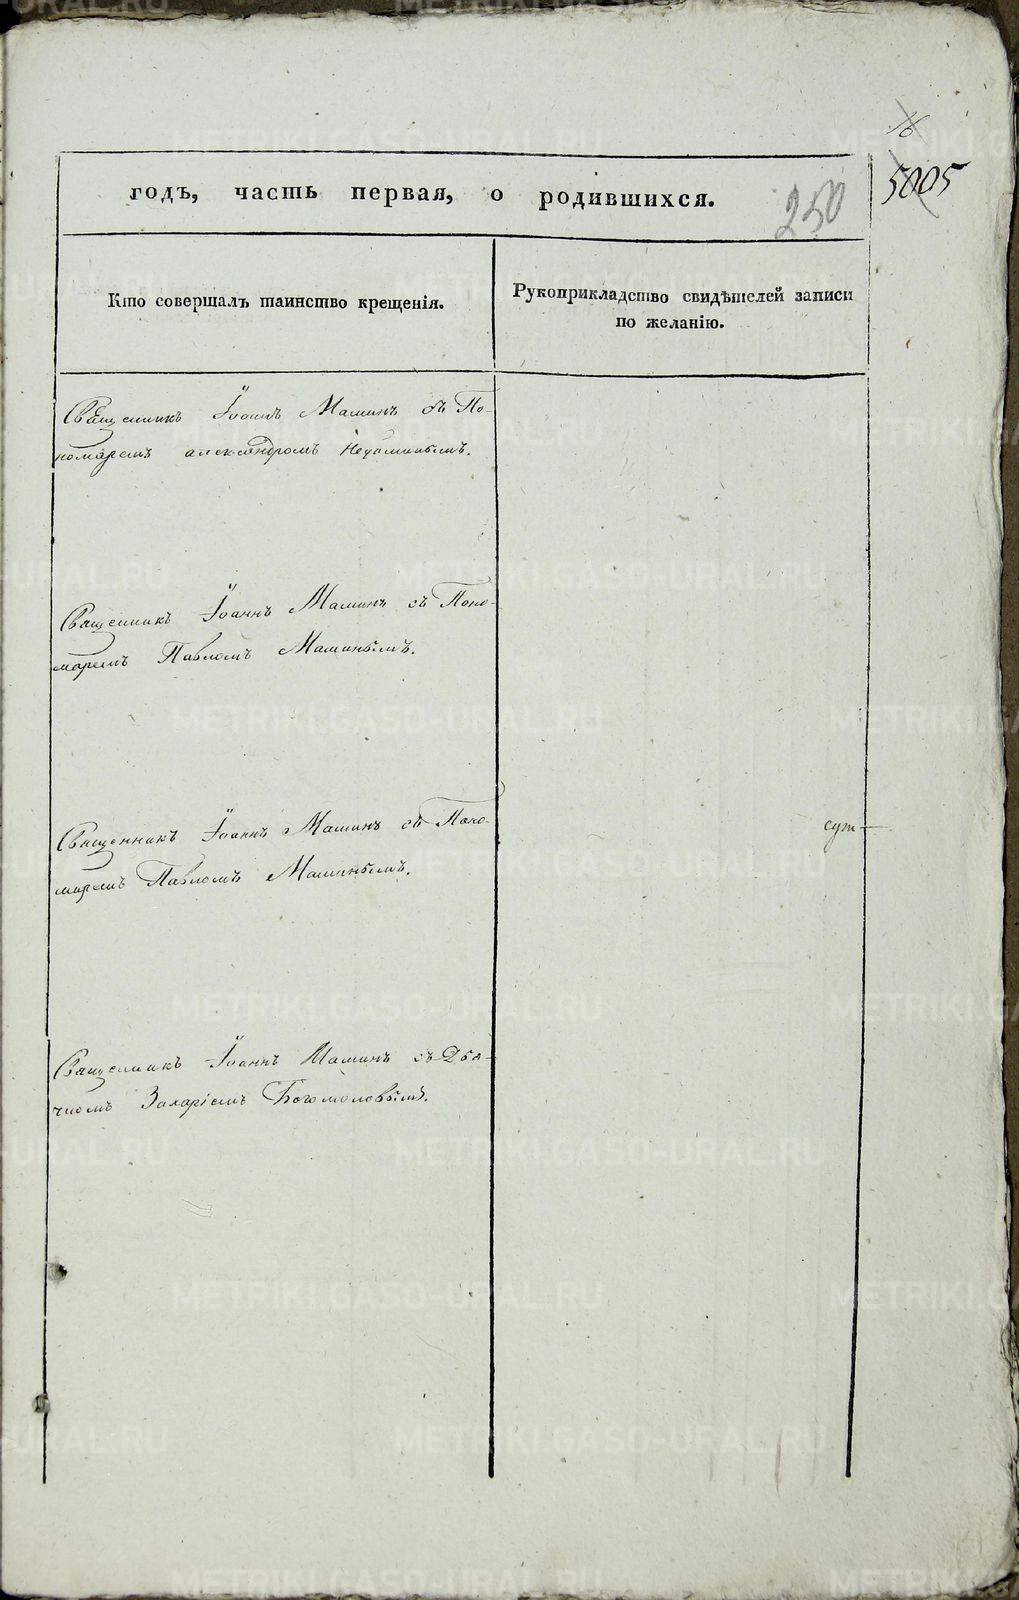 16
5005
годъ, часть первая, о родившихся.
250
Кто совершалъ таинство крещенія.
Рукоприкладство свидѣтелей записи
по желанію.
Священникъ Іоаннъ Маминъ съ По-
номаремъ александромъ
Священникъ Іоаннъ Маминъ съ Поно-
маремъ Павломъ Маминымъ.
Священникъ Іоаннъ Маминъ съ Поно-
маремъ Павломъ Маминымъ.
Священникъ Іоаннъ Маминъ съ Дья-
чкомъ Захаріемъ Богомоловымъ.
METRIKI.GASO-URAL.RU